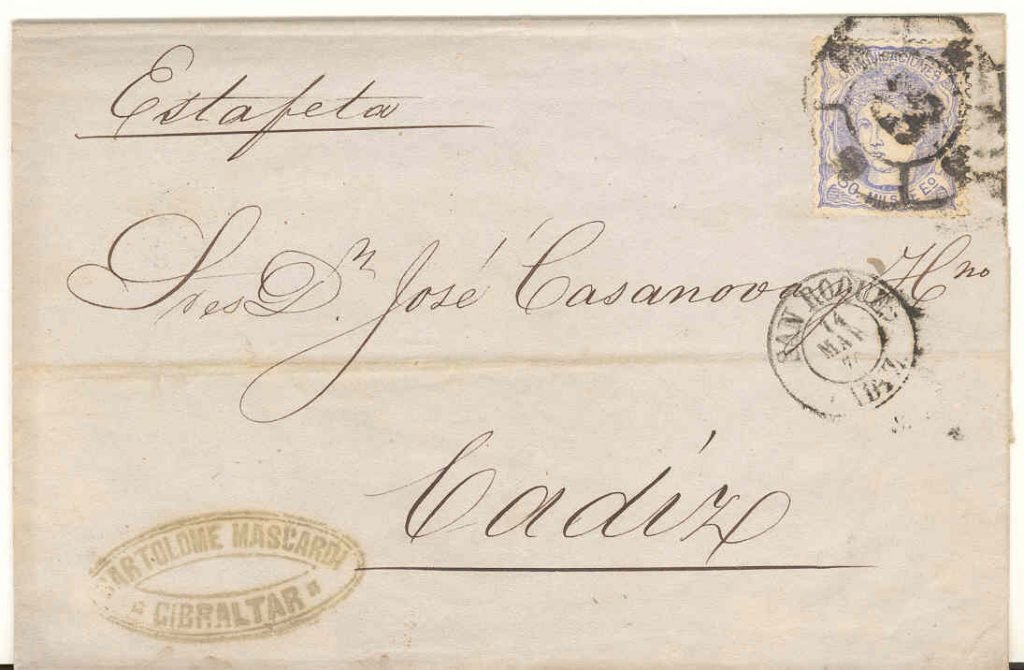 Estafeta
COMUNICACIONES
50 MILS DE Eo
Sres Dn José Casanova y Hno
SAN ROQUE
14
MAY
70
Cadiz
BARTOLOME MASCARDI
GIBRALTAR